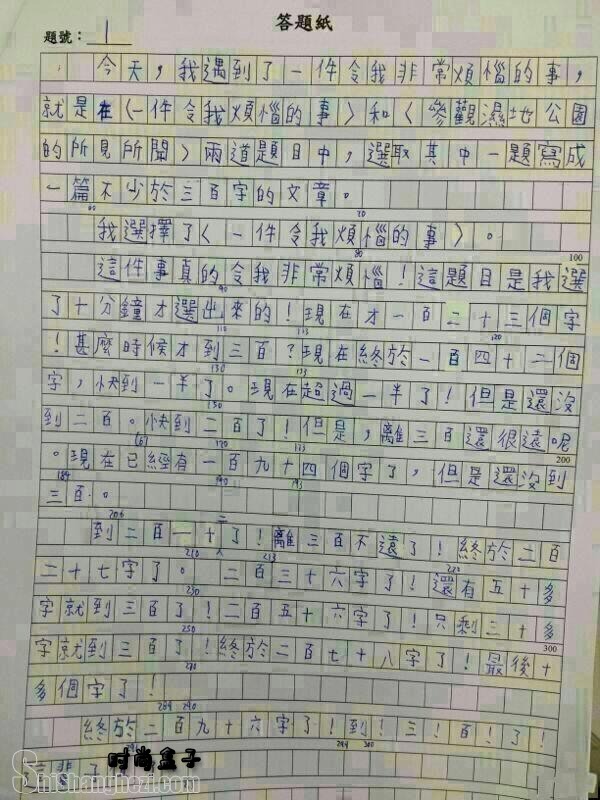 答題紙
題號：1
今天，我遇到了一件令我非常煩惱的事，
就是在〈一件令我煩惱的事〉和〈參觀濕地公園
的所見所聞〉兩道題目中，選取其中一題寫成
一篇不少於三百字的文章。
我選擇了〈一件令我煩惱的事〉。
100
這件事真的令我非常煩惱！這題目是我選
了十分鐘才選出來的！現在才一百二十三個字
！甚麼時候才到三百？現在終於一百四十二個
字，快到一半了。現在超過一半了！但是還沒
到二百。快到二百了！但是，離三百還很遠呢
200
。現在已經有一百九十四個字了，但是還沒到
三百。
到二百一十二了！離三百不遠了！終於二百
二十七字了。二百三十六字了！還有五十多
字就到三百了！二百五十六字了！只剩三十多
300
字就到三百了！終於二百七十八字了！最後十
多個字了！
終於二百九十六字了！到！三！百！了！
時尚盒子
Shishanghezi.com